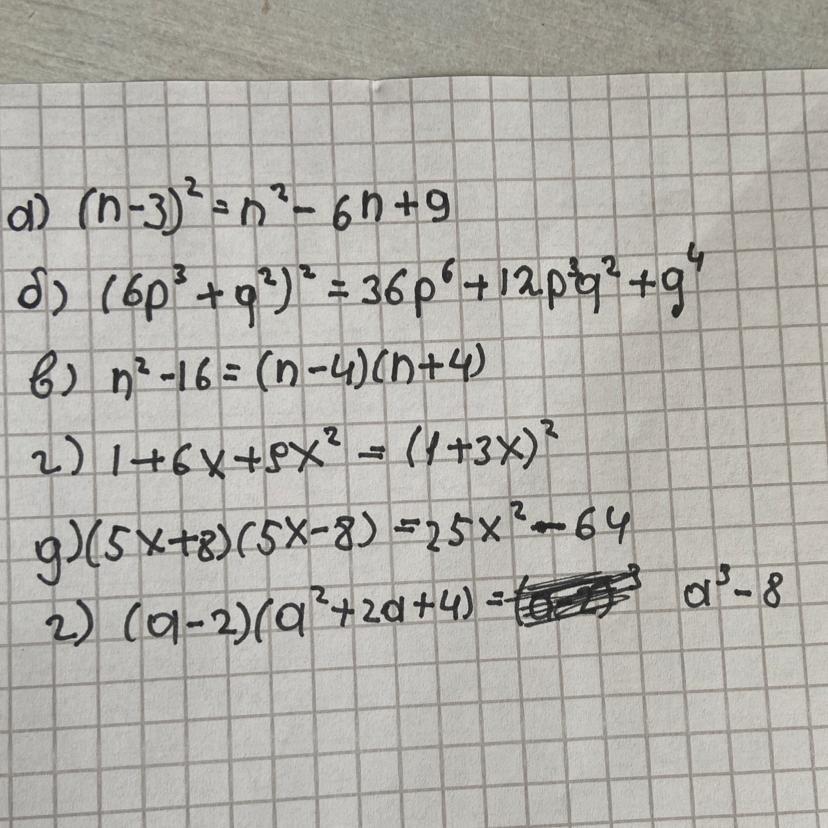 а) (n-3)² = n² - 6n + 9
б) (6p³ + q²)² = 36p⁶ + 12p³q² + q⁴
в) n² - 16 = (n-4)(n+4)
г) 1 + 6x + 9x² = (1+3x)²
д) (5x+8)(5x-8) = 25x² - 64
г) (a-2)(a²+2a+4) = a³ - 8